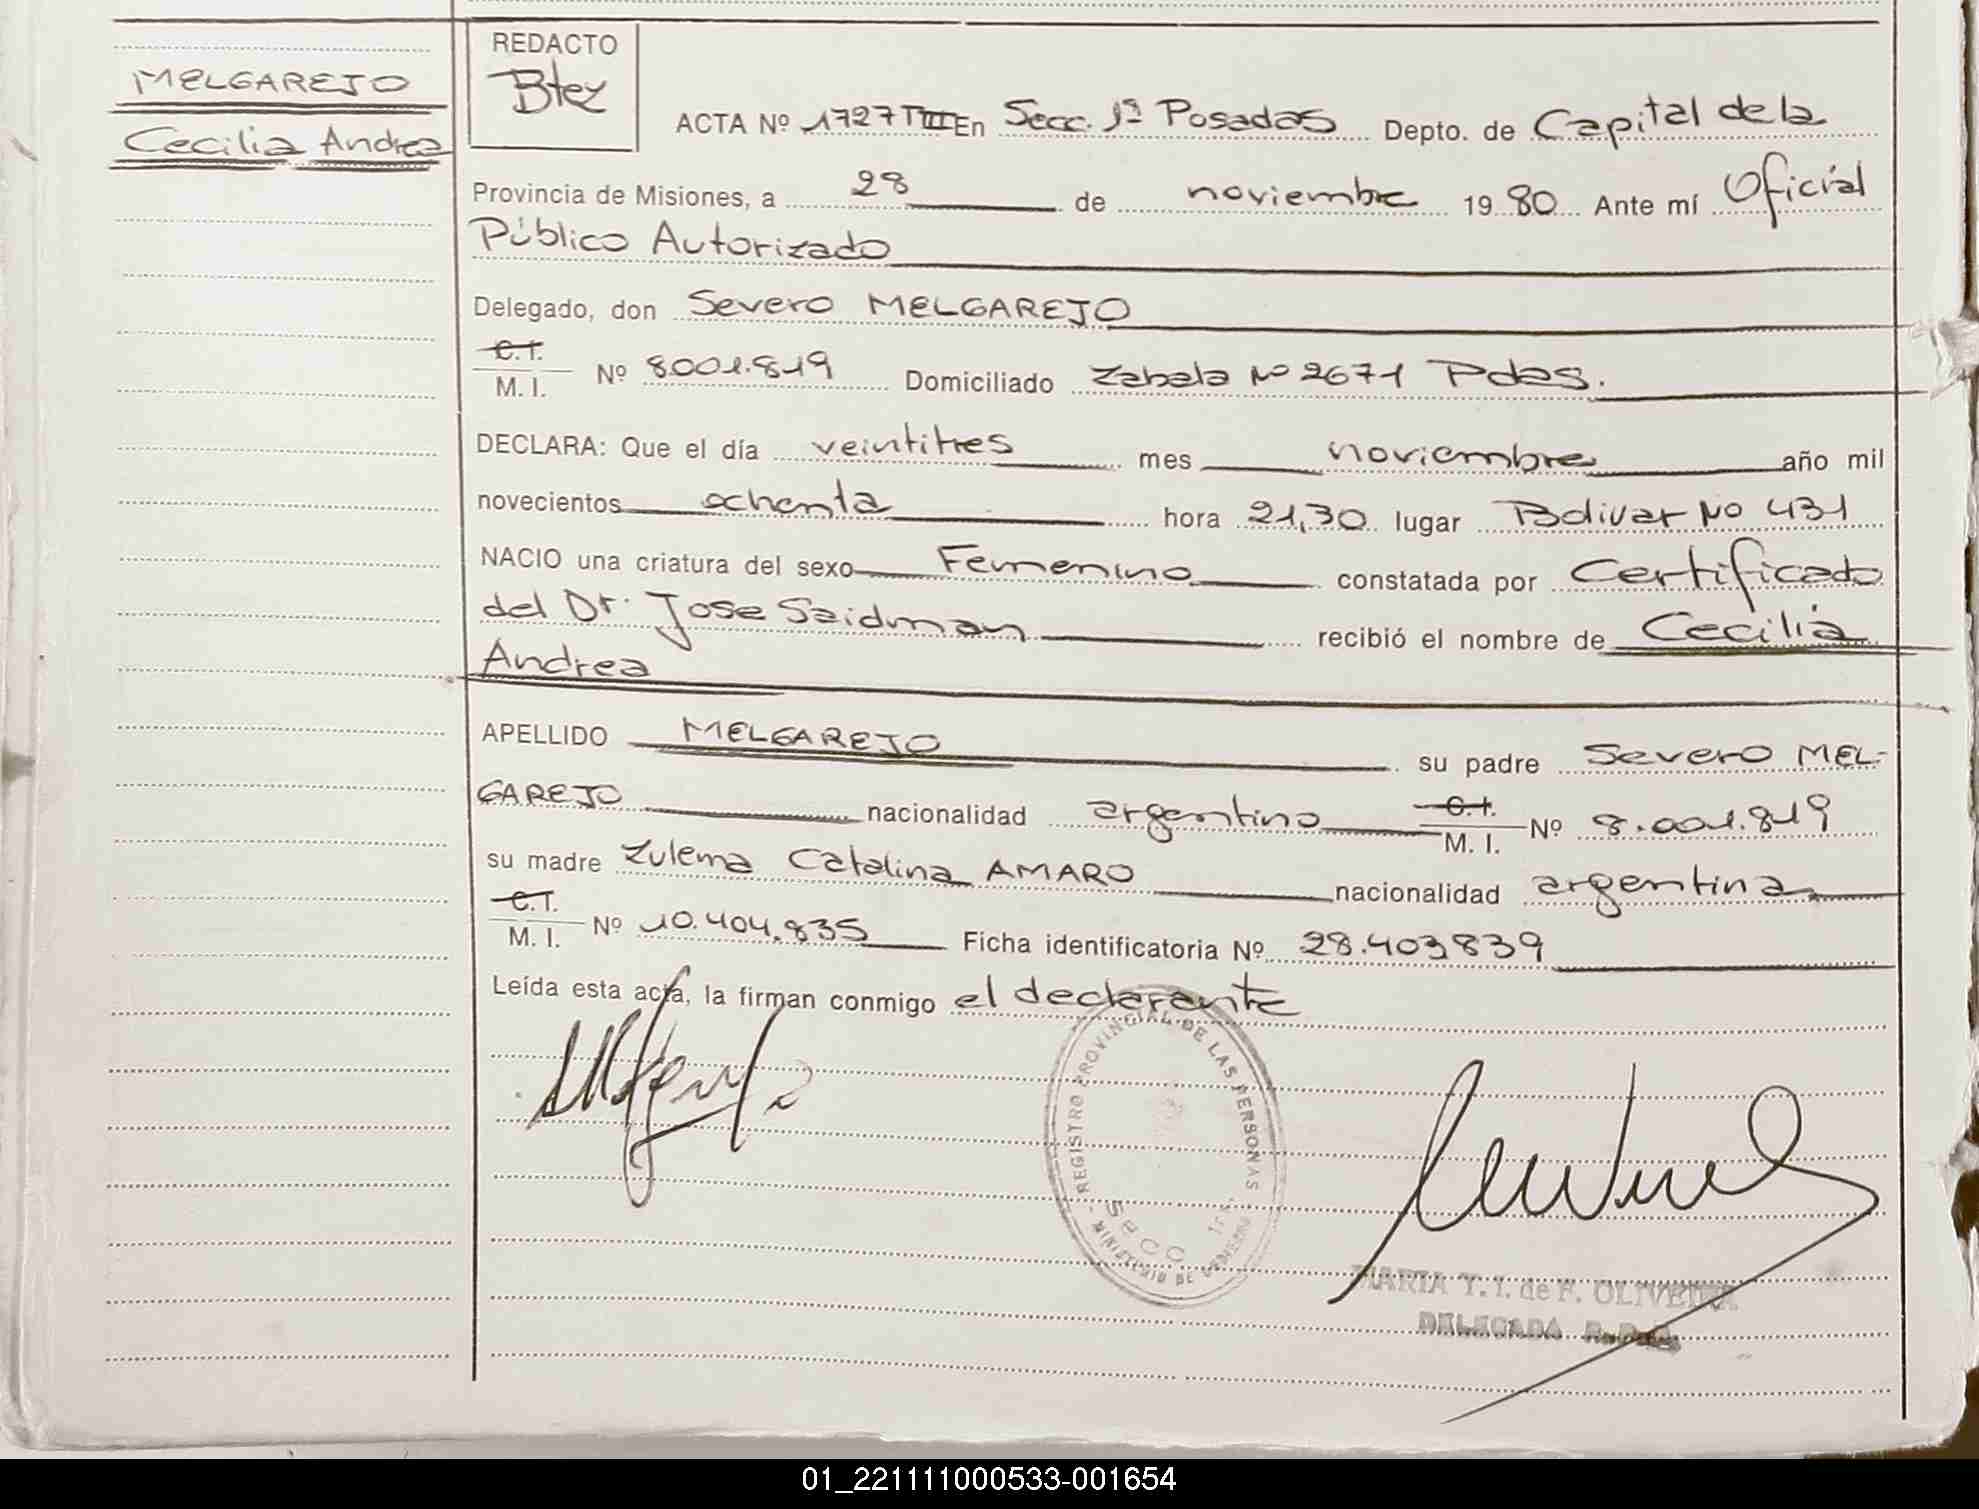 MELGAREJO
Cecilia Andrea
REDACTO
Btez
ACTA Nº 1727 TIII En Secc. 1ª Posadas Depto. de Capital de la
Provincia de Misiones, a 28 de noviembre 19 80 Ante mí Oficial
Público Autorizado
Delegado, don Severo MELGAREJO
C.I.
M. I. Nº 8001.819 Domiciliado Zabala Nº 2671 Pdas.
DECLARA: Que el día veintitres mes noviembre año mil
novecientos ochenta hora 21,30 lugar Bolivar Nº 431
NACIO una criatura del sexo Femenino constatada por Certificado
del Dr. Jose Saidman recibió el nombre de Cecilia
Andrea
APELLIDO MELGAREJO su padre Severo MEL-
GAREJO nacionalidad argentino C.I. M. I. Nº 8.001.819
su madre Zulema Catalina AMARO nacionalidad argentina
C.I.
M. I. Nº 10.404.835 Ficha identificatoria Nº 28.403.839
Leída esta acta, la firman conmigo el declarante
REGISTRO PROVINCIAL DE LAS PERSONAS
Secc. 1ra.
MINISTERIO DE GOBIERNO
MARIA Y. I. de F. OLIVEIRA
DELEGADA R.P.P.
01_221111000533-001654